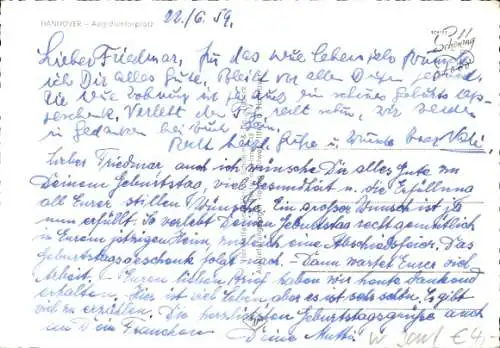 HANNOVER – Aegidientorplatz
22./6. 59.
Lieber Friedmar, für das neue Lebensjahr wünsche
ich Dir alles Gute. Bleibt vor allen Dingen gesund.
Die neue Wohnung ist ja auch ein schönes Geburtstags-
geschenk. Verlebt den Tag recht schön, wir werden
in Gedanken bei Euch sein.
Recht herzl. Grüße u. Wünsche
Lieber Friedmar, auch ich wünsche Dir alles Gute zu
Deinem Geburtstag, viel Gesundheit u. die Erfüllung
all Eurer stillen Wünsche. Ein großer Wunsch ist ja
nun erfüllt. So verlebt Deinen Geburtstag recht gemütlich
in Eurem jetzigen Heim, zugleich eine Abschiedsfeier. Das
Geburtstagsgeschenk folgt noch. – Dann wartet Eurer viel
Arbeit. – Euren lieben Brief haben wir heute dankend
erhalten. Hier ist viel Leben, aber es ist sehr schön. Es gibt
viel zu erzählen. Die herzlichsten Geburtstagsgrüße auch
an Dein Frauchen Deine Mutti